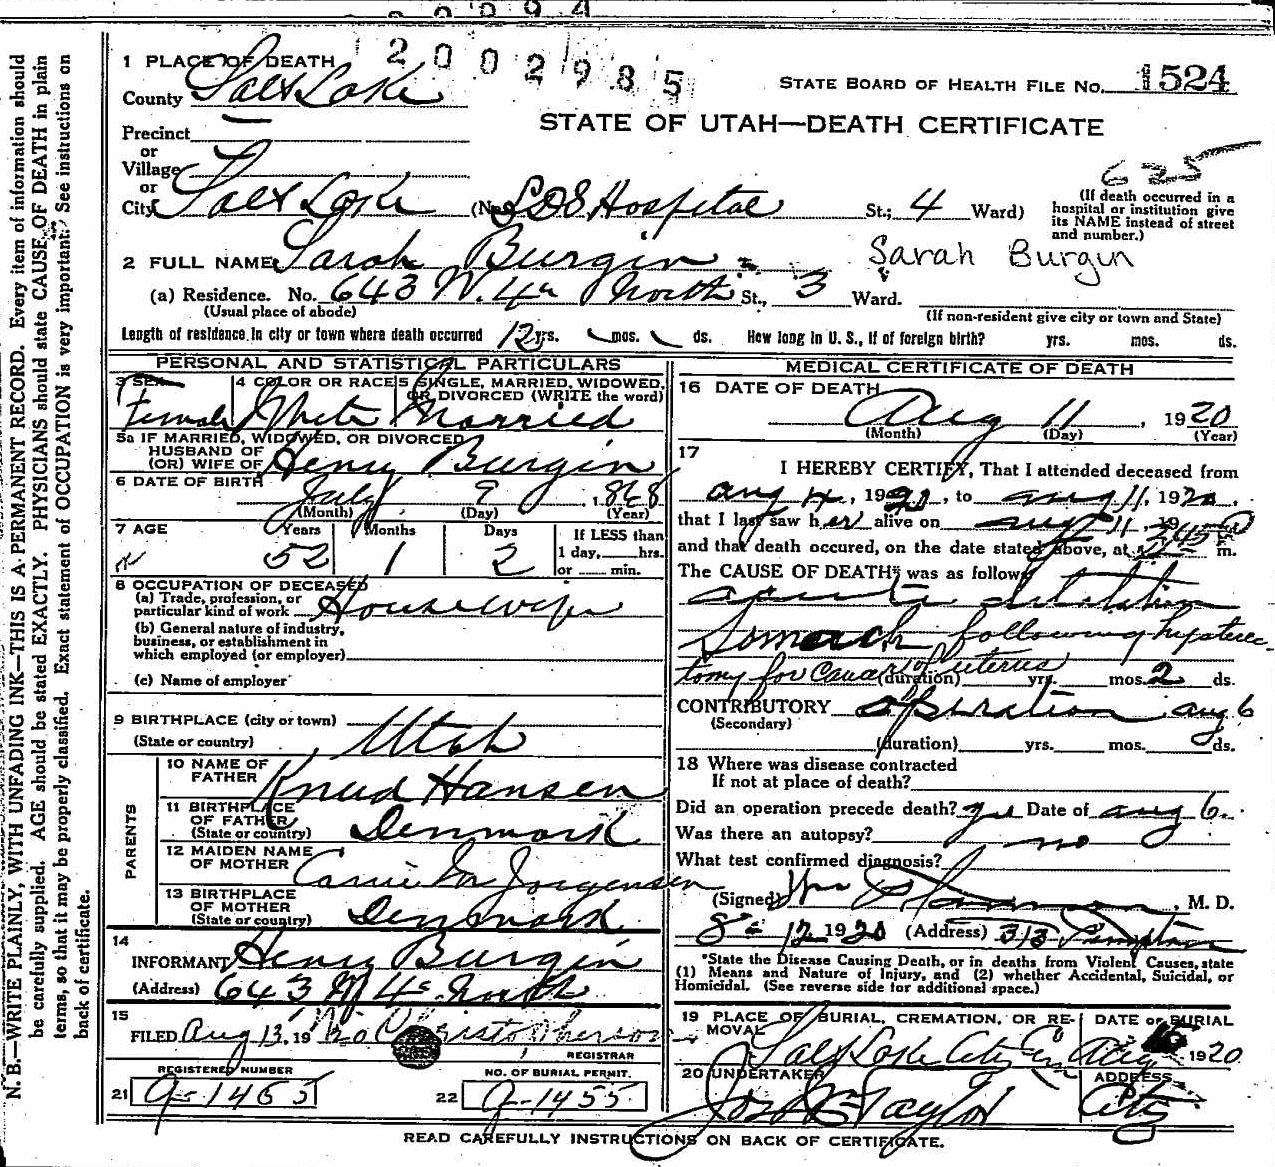 2002985
1 PLACE OF DEATH
STATE BOARD OF HEALTH FILE No. 1524
County Salt Lake
STATE OF UTAH—DEATH CERTIFICATE
Precinct
or
Village
625
or
City Salt Lake (No. LDS Hospital St.; 4 Ward)
(If death occurred in a hospital or institution give its NAME instead of street and number.)
2 FULL NAME Sarah Burgin
Sarah Burgin
(a) Residence. No. 643 W. 4th North St., 3 Ward.
(Usual place of abode)
(If non-resident give city or town and State)
Length of residence in city or town where death occurred 12 yrs. mos. ds. How long in U. S., if of foreign birth? yrs. mos. ds.
PERSONAL AND STATISTICAL PARTICULARS
3 SEX Female
4 COLOR OR RACE White
5 SINGLE, MARRIED, WIDOWED, OR DIVORCED (WRITE the word) Married
5a IF MARRIED, WIDOWED, OR DIVORCED
HUSBAND OF
(OR) WIFE OF Henry Burgin
6 DATE OF BIRTH July 9, 1868
(Month) (Day) (Year)
7 AGE Years Months Days If LESS than
52 1 2 1 day, hrs.
or min.
8 OCCUPATION OF DECEASED
(a) Trade, profession, or
particular kind of work Housewife
(b) General nature of industry,
business, or establishment in
which employed (or employer)
(c) Name of employer
9 BIRTHPLACE (city or town)
(State or country) Utah
PARENTS
10 NAME OF
FATHER Knud Hansen
11 BIRTHPLACE
OF FATHER
(State or country) Denmark
12 MAIDEN NAME
OF MOTHER Carrie M Jorgensen
13 BIRTHPLACE
OF MOTHER
(State or country) Denmark
14
INFORMANT Henry Burgin
(Address) 643 W 4 North
15
FILED Aug 13, 19 20 Christopherson
REGISTRAR
REGISTERED NUMBER
21 Q-1465
NO. OF BURIAL PERMIT.
22 Q-1455
MEDICAL CERTIFICATE OF DEATH
16 DATE OF DEATH
Aug 11, 1920
(Month) (Day) (Year)
17
I HEREBY CERTIFY, That I attended deceased from
Aug 4, 1920, to Aug 11, 1920.
that I last saw her alive on Aug 11, 19
and that death occured, on the date stated above, at 245 P m.
The CAUSE OF DEATH* was as follows
acute dilatation
Stomach following hysterec-
tomy for Cancer of uterus (duration) yrs. mos. 2 ds.
CONTRIBUTORY operation aug 6
(Secondary)
(duration) yrs. mos. ds.
18 Where was disease contracted
If not at place of death?
Did an operation precede death? yes Date of aug 6.
Was there an autopsy? no
What test confirmed diagnosis?
(Signed) M. D.
8-12 1920 (Address) 313
*State the Disease Causing Death, or in deaths from Violent Causes, state
(1) Means and Nature of Injury, and (2) whether Accidental, Suicidal, or
Homicidal. (See reverse side for additional space.)
19 PLACE OF BURIAL, CREMATION, OR RE-
MOVAL Salt Lake City Cem
DATE OF BURIAL
Aug 1920
20 UNDERTAKER
Taylor
ADDRESS
City
READ CAREFULLY INSTRUCTIONS ON BACK OF CERTIFICATE.
N. B.—WRITE PLAINLY, WITH UNFADING INK—THIS IS A PERMANENT RECORD. Every item of information should
be carefully supplied. AGE should be stated EXACTLY. PHYSICIANS should state CAUSE OF DEATH in plain
terms, so that it may be properly classified. Exact statement of OCCUPATION is very important. See instructions on
back of certificate.